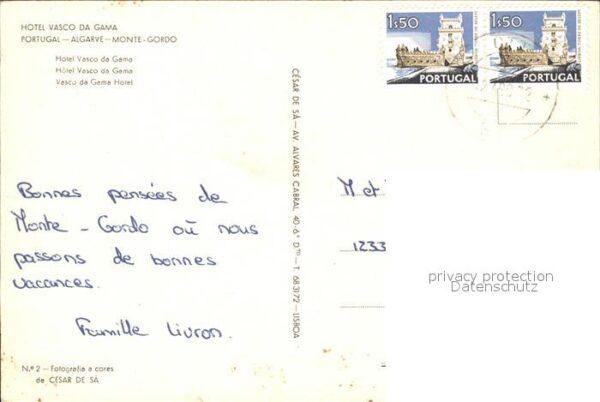 HOTEL VASCO DA GAMA
PORTUGAL — ALGARVE — MONTE-GORDO
Hotel Vasco da Gama
Hôtel Vasco da Gama
Vasco da Gama Hotel
1$50
PORTUGAL
1$50
PORTUGAL
CÉSAR DE SÁ — AV. ALVARES CABRAL 40-6.º D.TO — T. 683172 — LISBOA
Bonnes pensées de
Monte - Gordo où nous
passons de bonnes
vacances.
Famille Livron.
M et
1233
privacy protection
Datenschutz
N.º 2 — Fotografia a cores
de CÉSAR DE SÁ